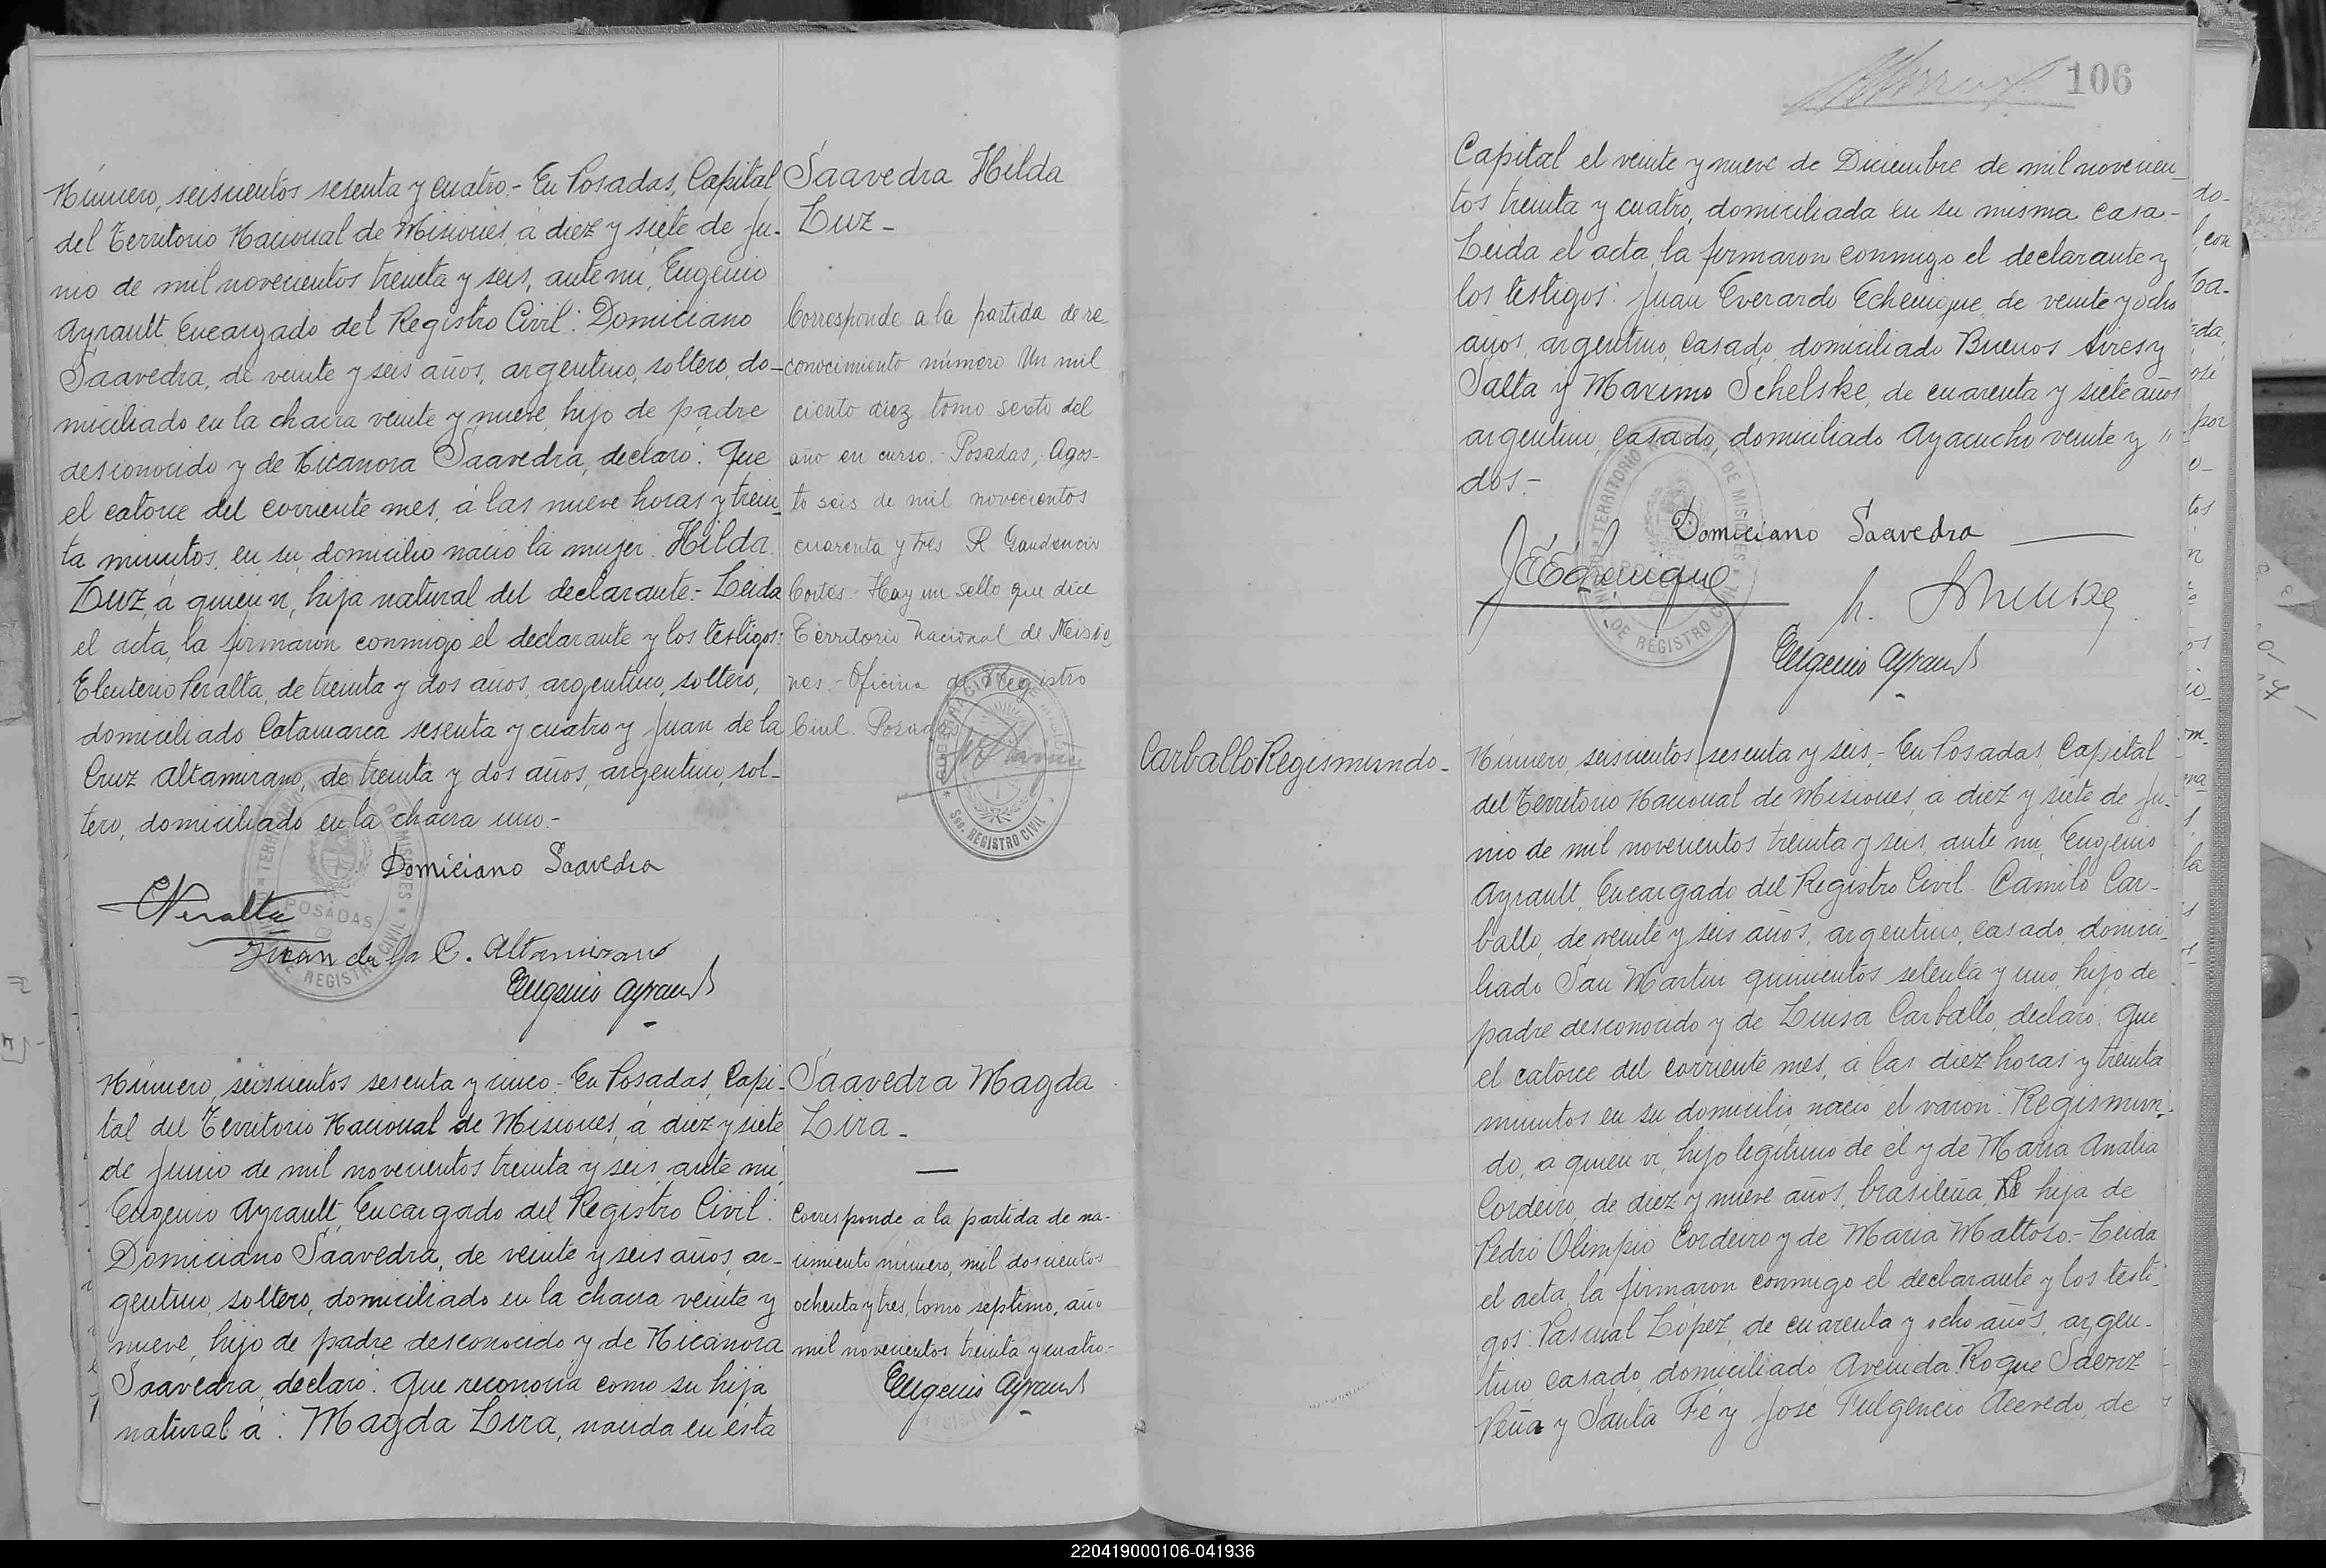 Número, seiscientos sesenta y cuatro.- En Posadas, Capital
del Territorio Nacional de Misiones, á diez y siete de Ju-
nio de mil novecientos treinta y seis, ante mí, Eugenio
Ayrault, Encargado del Registro Civil: Domiciano
Saavedra, de veinte y seis años, argentino, soltero, do-
miciliado en la chacra veinte y nueve, hijo de padre
desconocido y de Nicanora Saavedra, declaró: Que
el catorce del corriente mes, á las nueve horas y trein-
ta minutos, en su domicilio nació la mujer: Hilda
Luz, á quien vi, hija natural del declarante.- Leida
el acta, la firmaron conmigo el declarante y los testigos:
Eleuterio Peralta, de treinta y dos años, argentino, soltero,
domiciliado Catamarca sesenta y cuatro y Juan de la
Cruz Altamirano, de treinta y dos años, argentino, sol-
tero, domiciliado en la chacra uno.-
Domiciano Saavedra
EPeralta
Juan de la C. Altamirano
Eugenio Ayrault
Saavedra Hilda
Luz -
Corresponde a la partida de re-
conocimiento número Un mil
ciento diez tomo sexto del
año en curso.- Posadas, Agos-
to seis de mil novecientos
cuarenta y tres R Gaudencio
Cortés.- Hay un sello que dice
Territorio Nacional de Misio-
nes.- Oficina de Registro
Civil. Posadas
Sec. REGISTRO CIVIL
Número, seiscientos sesenta y cinco.- En Posadas, Capi-
tal del Territorio Nacional de Misiones, á diez y siete
de Junio de mil novecientos treinta y seis, ante mí,
Eugenio Ayrault, Encargado del Registro Civil:
Domiciano Saavedra, de veinte y seis años, ar-
gentino, soltero, domiciliado en la chacra veinte y
nueve, hijo de padre desconocido y de Nicanora
Saavedra, declaró: Que reconocía como su hija
natural á: Magda Lira, nacida en ésta
Saavedra Magda
Lira -
Corresponde á la partida de na-
cimiento número, mil doscientos
ochenta y tres, tomo septimo, año
mil novecientos treinta y cuatro.-
Eugenio Ayrault
106
Capital el veinte y nueve de Diciembre de mil novecien-
tos treinta y cuatro, domiciliada en su misma casa.-
Leida el acta, la firmaron conmigo el declarante y
los testigos: Juan Everardo Echenique, de veinte y ocho
años, argentino, casado, domiciliado Buenos Aires y
Salta y Maximo Schelske, de cuarenta y siete años
argentino, casado, domiciliado Ayacucho veinte y "
dos.-
TERRITORIO NACIONAL DE MISIONES
POSADAS
OFICINA DE REGISTRO CIVIL
Domiciano Saavedra
JEEchenique
M. Schelske
Eugenio Ayrault
Carballo Regismundo.-
Número, seiscientos sesenta y seis.- En Posadas, Capital
del Territorio Nacional de Misiones, á diez y siete de Ju-
nio de mil novecientos treinta y seis, ante mí, Eugenio
Ayrault, Encargado del Registro Civil: Camilo Car-
ballo, de veinte y seis años, argentino, casado, domici-
liado San Martin quinientos setenta y uno, hijo de
padre desconocido y de Luisa Carballo, declaró: Que
el catorce del corriente mes, á las diez horas y treinta
minutos en su domicilio, nació el varon: Regismun-
do, á quien vi, hijo legítimo de él y de María Analia
Cordeiro, de diez y nueve años, brasileña, hija de
Pedro Olimpio Cordeiro y de Maria Mattoso.- Leida
el acta, la firmaron conmigo el declarante y los testi-
gos: Pascual López, de cuarenta y ocho años, argen-
tino casado, domiciliado Avenida Roque Saenz
Peña y Santa Fé y José Fulgencio Acevedo, de
220419000106-041936